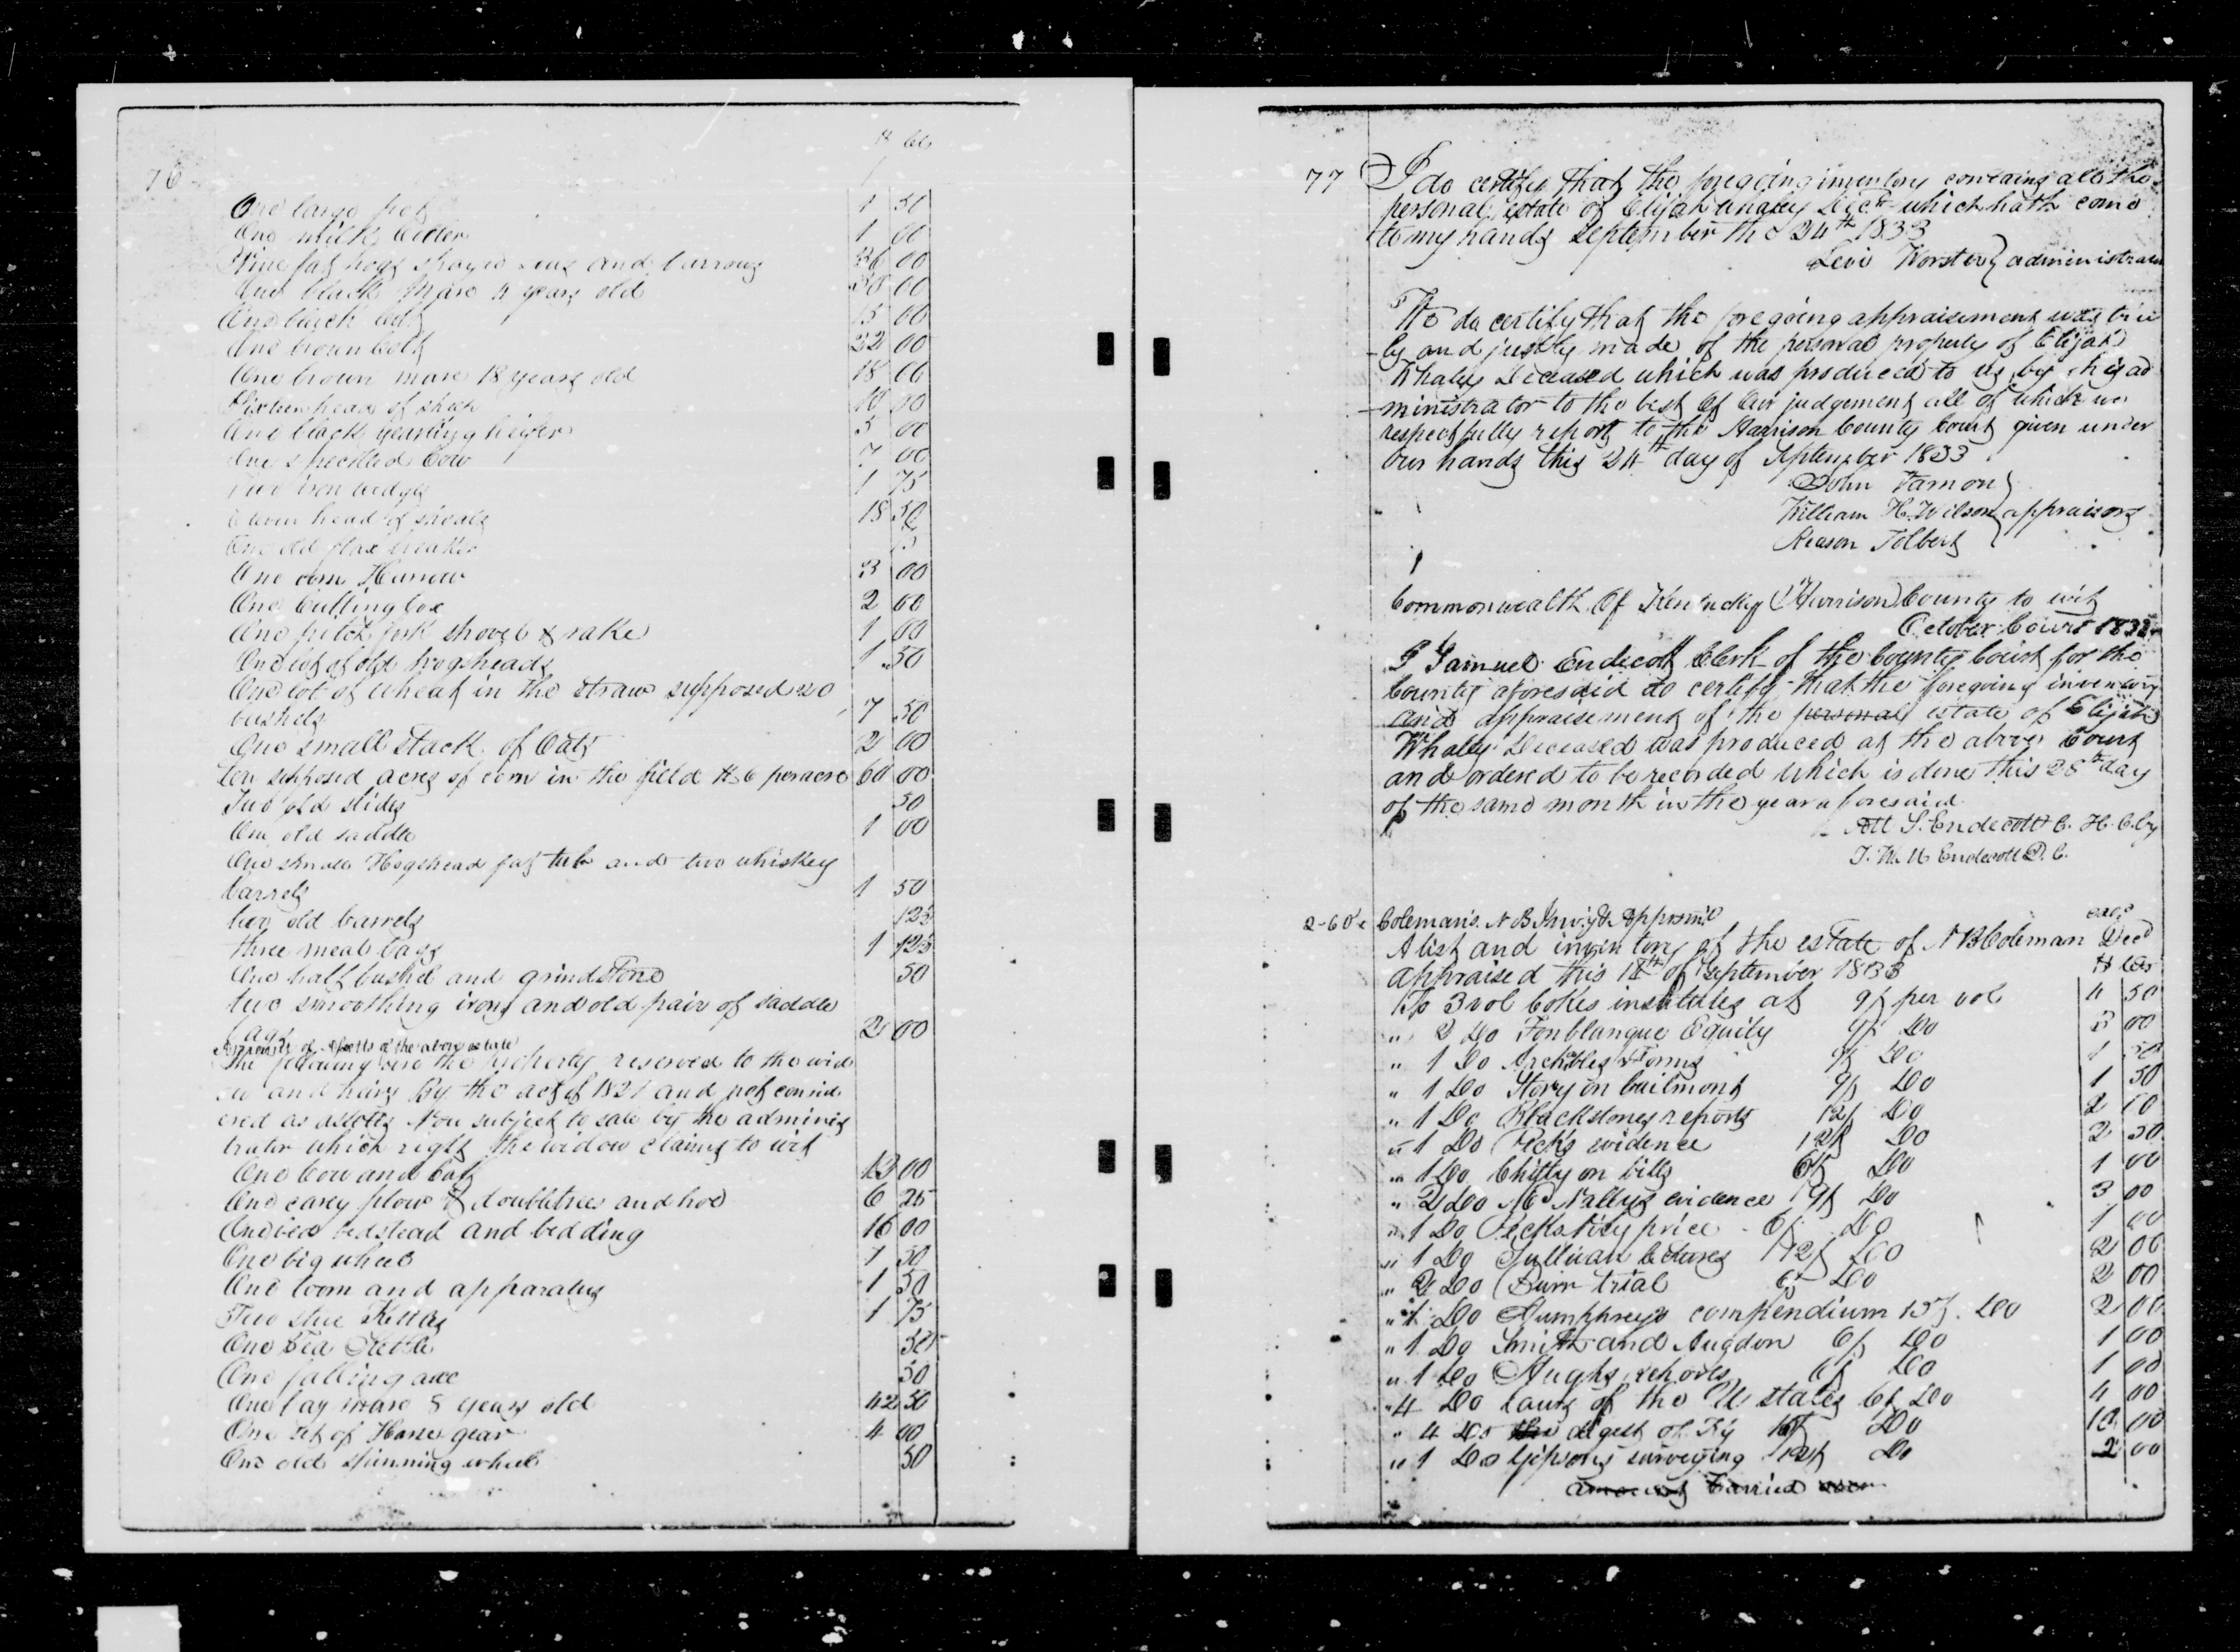 76
$ cts
One large pot 1 50
One milk 1 00
Nine fat hogs and barrows 36 00
One black mare 4 years old 00
One black colt 15 00
One brown colt 22 00
One brown mare 18 years old 18 00
Sixteen head of sheep
One black yearling heifer 5 00
One speckled Cow 7 00
Two iron wedges 1 75
head of shoats 18 50
One old flax breaker
One corn Harrow 3 00
One Cutting box 2 00
One pitch fork shovel & rake 1 00
One lot of old hogsheads 1 50
One lot of wheat in the straw supposed 20
bushels 7 50
One small stack of Oats 2 00
Ten supposed acres of corn in the field $6 per acre 60 00
Two old slides 50
One old saddle 1 00
One small Hogshead fat tub and two whiskey
barrels 1 50
two old barrels 12½
three meal bags 1 12½
One half bushel and grindstone 50
two smoothing irons and old pair of saddle
bags 2 00
of the above estate
The following are the property reserved to the wid
ow and hairs By the act of 1821 and not consid
ered as assetts Nor subject to sale by the adminis
trator which right the widow claims to wit
One Cow and Calf 12 00
One carey plow & doubletrees and hoe 6 25
One bed bedstead and bedding 16 00
One big wheel 1 50
One loom and apparatus 1 50
Two stue Kettles 1 75
One Tea Kettle
One falling axe 50
One bay mare 8 years old 42 50
One set of Horse gear 4 00
One old spinning wheel 50
77 I do certify that the foregoing inventory contains all the
personal estate of Elijah Whaley Decd which hath come
to my hands September the 24th 1833
Levi administrator
We do certify that the foregoing appraisement was tru
ly and justly made of the personal property of Elijah
Whaley Deceased which was produced to us by his ad
ministrator to the best of Our judgement all of which we
respectfully report to the Harrison County Court given under
Our hands this 24th day of September 1833
John
William H. Wilson appraisors
Reason Tolbert
Commonwealth Of Kentucky Harrison County to wit
October Court 1833
I Samuel Endecott Clerk of the County Court for the
County aforesaid do certify that the foregoing inventory
and appraisement of the personal estate of Elijah
Whaley Deceased was produced at the above Court
and ordered to be recorded which is done this 28th day
of the same month in the year aforesaid
Att S. Endecott C. H. C. by
Endecott D. C.
Coleman's N B Invy & Apprsmt
A list and inventory of the estate of N B Coleman Decd
appraised this 18th of September 1833 $ cts
To 3 vol Cokes institutes at 9/ per vol 4 50
" 2 Do Fonblanque Equity 9/ Do 3 00
" 1 Do Forms 9/ Do 1 50
" 1 Do Story on bailment 9/ Do 1 50
" 1 Do Blackstones reports 12/ Do 2 00
" 1 Do Peck's evidence 12/ Do
" 1 Do Chitty on bills 6/ Do 1 00
" 2 Do McNallys evidence 9/ Do 3 00
" 1 Do 6/ Do 1 00
" 1 Do Sullivan lectures 12/ Do 2 00
" 2 Do Burr trial 6/ Do 2 00
" 1 Do Humphreys compendium Do 2 00
" 1 Do Smith and 6/ Do 1 00
" 1 Do Hughs reports 6/ Do 1 00
" 4 Do laws of the U states 6/ Do 4 00
" 4 Do digest of Ky Do 00
" 1 Do Gipsons surveying 12/ Do 2 00
amount Carried over